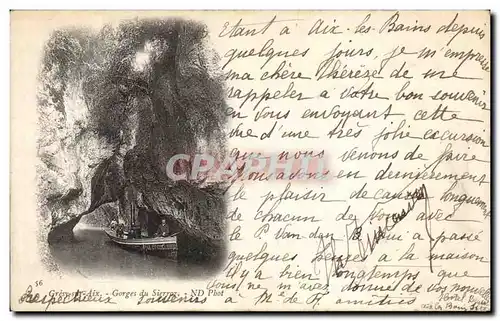 Etant à Aix-les-Bains depuis
quelques jours, je m'empresse
ma chère Thérèse de me
rappeler à votre bon souvenir
en vous envoyant cette
vue d'une très jolie excursion
que nous venons de faire
avons en dernièrement
le plaisir de causer longuement
de chacun de vous avec
le P. Van den qui a passé
quelques à la maison
il y a bien longtemps que
vous ne m'avez donné de vos nouvelles
56 Grésy-sur-Aix. - Gorges du Sierroz. - ND Phot
Respectueux souvenirs à amitiés